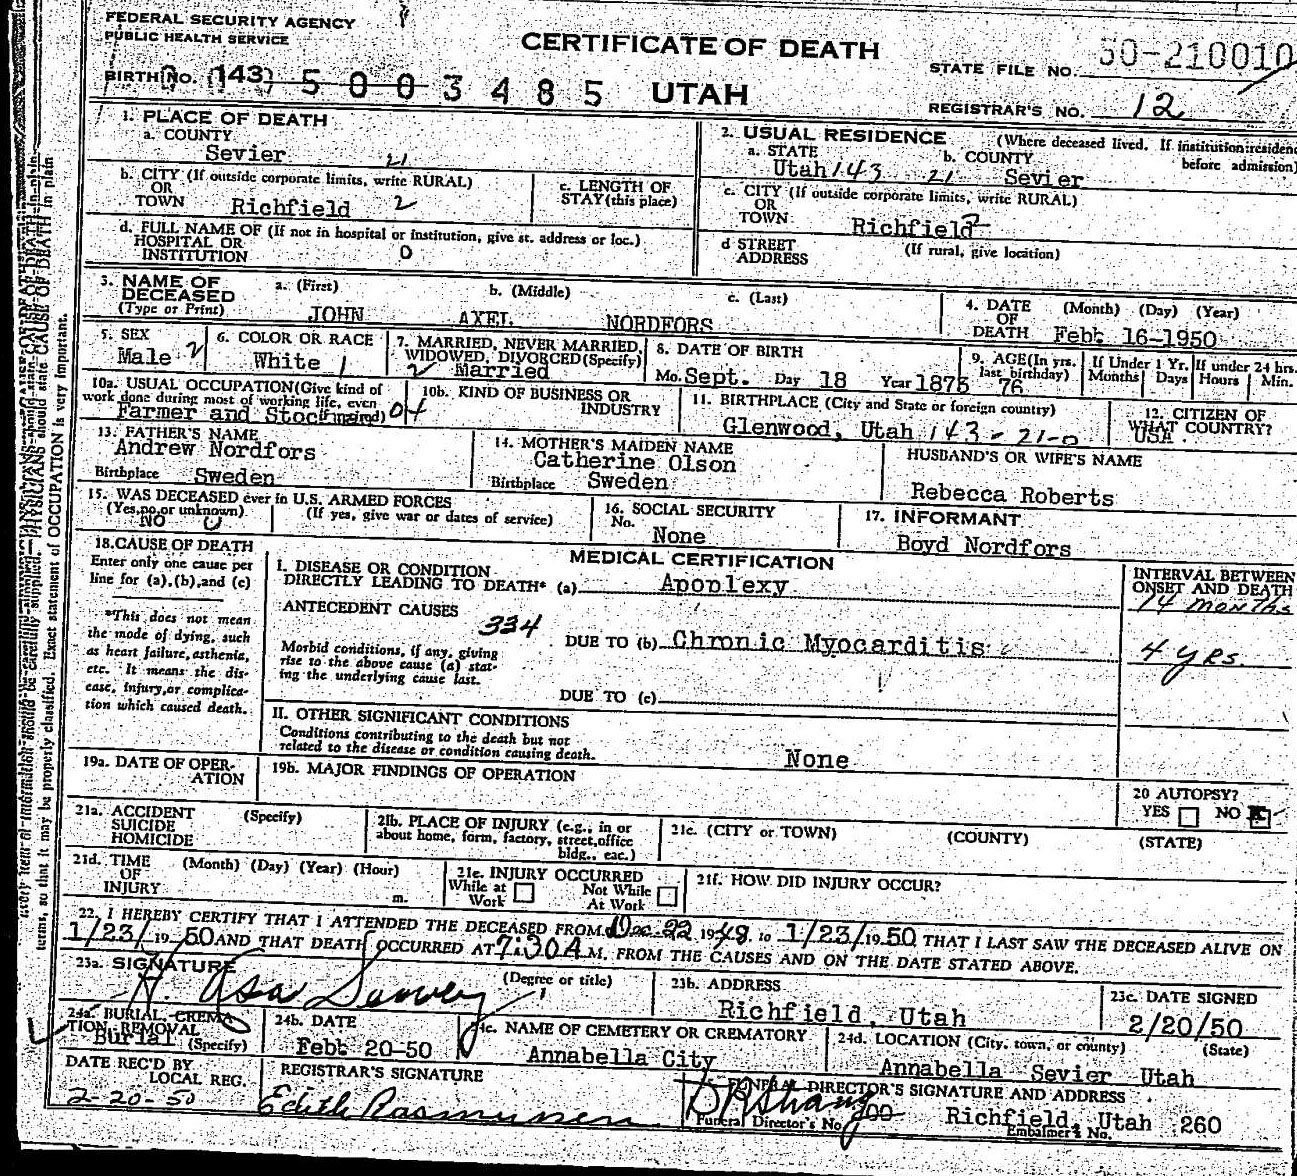 FEDERAL SECURITY AGENCY
PUBLIC HEALTH SERVICE
CERTIFICATE OF DEATH
STATE FILE NO. 50-210010
BIRTH No. (143) 5 0 0 3 4 8 5 UTAH
REGISTRAR'S NO. 12
1. PLACE OF DEATH
a. COUNTY
Sevier 21
2. USUAL RESIDENCE (Where deceased lived. If institution: residence before admission)
a. STATE b. COUNTY
Utah 143 21 Sevier
b. CITY (If outside corporate limits, write RURAL)
OR
TOWN Richfield 2
c. LENGTH OF
STAY (this place)
c. CITY (If outside corporate limits, write RURAL)
OR
TOWN Richfield
d. FULL NAME OF (If not in hospital or institution, give st. address or loc.)
HOSPITAL OR
INSTITUTION 0
d STREET (If rural, give location)
ADDRESS
3. NAME OF a. (First) b. (Middle) c. (Last)
DECEASED
(Type or Print) JOHN AXEL NORDFORS
4. DATE (Month) (Day) (Year)
OF
DEATH Feb. 16-1950
5. SEX
Male 2
6. COLOR OR RACE
White 1
7. MARRIED, NEVER MARRIED,
WIDOWED, DIVORCED (Specify)
2 Married
8. DATE OF BIRTH
Mo. Sept. Day 18 Year 1873
9. AGE (In yrs. last birthday) 76
If Under 1 Yr. Months Days
If under 24 hrs. Hours Min.
10a. USUAL OCCUPATION (Give kind of
work done during most of working life, even
if retired)
Farmer and Stockman 04
10b. KIND OF BUSINESS OR
INDUSTRY
11. BIRTHPLACE (City and State or foreign country)
Glenwood, Utah 143-21-0
12. CITIZEN OF
WHAT COUNTRY?
USA.
13. FATHER'S NAME
Andrew Nordfors
Birthplace Sweden
14. MOTHER'S MAIDEN NAME
Catherine Olson
Birthplace Sweden
HUSBAND'S OR WIFE'S NAME
Rebecca Roberts
15. WAS DECEASED ever in U.S. ARMED FORCES
(Yes, no, or unknown) (If yes, give war or dates of service)
NO 0
16. SOCIAL SECURITY
No. None
17. INFORMANT
Boyd Nordfors
18. CAUSE OF DEATH
Enter only one cause per
line for (a), (b), and (c)
*This does not mean
the mode of dying, such
as heart failure, asthenia,
etc. It means the dis-
ease, injury, or complica-
tion which caused death.
MEDICAL CERTIFICATION
I. DISEASE OR CONDITION
DIRECTLY LEADING TO DEATH* (a) Apoplexy
INTERVAL BETWEEN
ONSET AND DEATH
14 months
ANTECEDENT CAUSES
334
Morbid conditions, if any, giving
rise to the above cause (a) stat-
ing the underlying cause last.
DUE TO (b) Chronic Myocarditis
4 yrs.
DUE TO (c)
II. OTHER SIGNIFICANT CONDITIONS
Conditions contributing to the death but not
related to the disease or condition causing death.
None
19a. DATE OF OPER-
ATION
19b. MAJOR FINDINGS OF OPERATION
20 AUTOPSY?
YES NO
21a. ACCIDENT (Specify)
SUICIDE
HOMICIDE
21b. PLACE OF INJURY (e.g., in or
about home, form, factory, street, office
bldg., eac.)
21c. (CITY or TOWN) (COUNTY) (STATE)
21d. TIME (Month) (Day) (Year) (Hour)
OF
INJURY m.
21e. INJURY OCCURRED
While at Work Not While At Work
21f. HOW DID INJURY OCCUR?
22. I HEREBY CERTIFY THAT I ATTENDED THE DECEASED FROM Dec 22 1948, to 1/23/1950 THAT I LAST SAW THE DECEASED ALIVE ON
1/23/1950 AND THAT DEATH OCCURRED AT 7:30 A M. FROM THE CAUSES AND ON THE DATE STATED ABOVE.
23a. SIGNATURE (Degree or title)
H. Asa
23b. ADDRESS
Richfield, Utah
23c. DATE SIGNED
2/20/50
24a. BURIAL, CREMA-
TION, REMOVAL
Burial (Specify)
24b. DATE
Feb. 20-50
24c. NAME OF CEMETERY OR CREMATORY
Annabella City
24d. LOCATION (City, town, or county) (State)
Annabella Sevier Utah
DATE REC'D BY
LOCAL REG.
2-20-50
REGISTRAR'S SIGNATURE
Edith Rasmussen
FUNERAL DIRECTOR'S SIGNATURE AND ADDRESS
Richfield, Utah 260
Funeral Director's No. Embalmer's No.
PHYSICIANS should state CAUSE OF DEATH in plain
terms, so that it may be properly classified. Exact statement of OCCUPATION is very important.